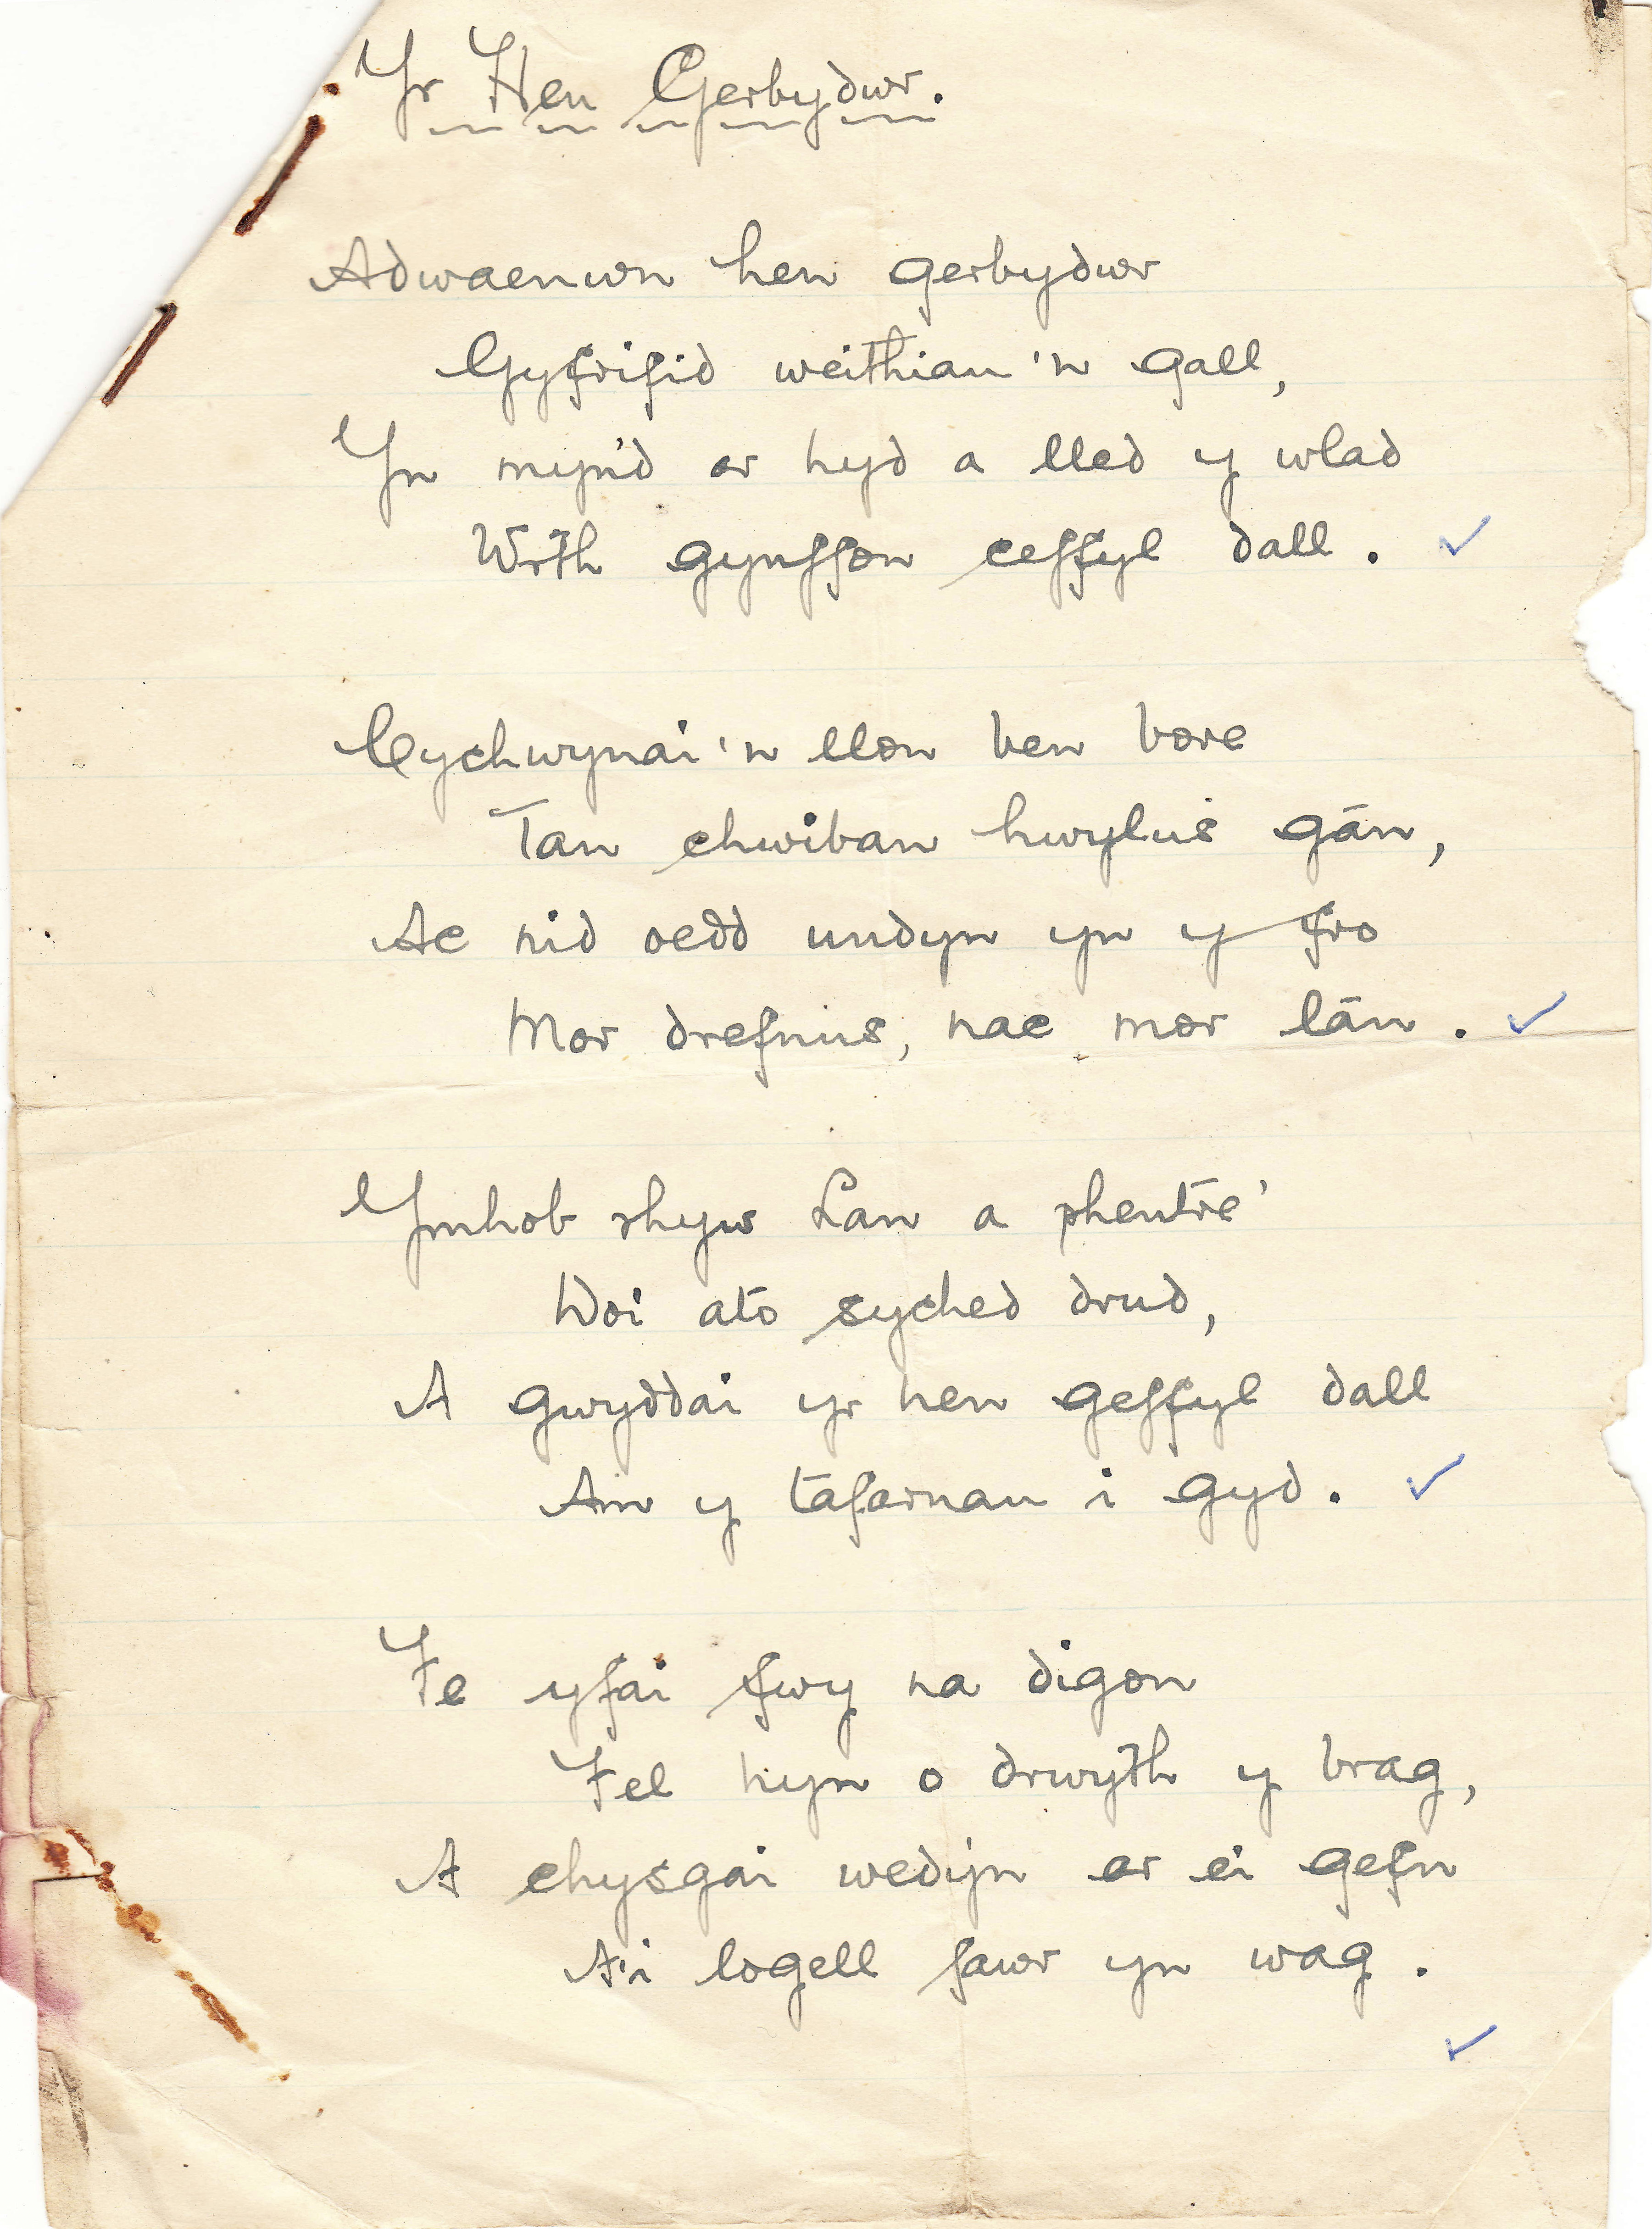 Yr Hen Gerbydwr.
Adwaenwn hen gerbydwr
Gyfrifid weithiau'n gall,
Yn myn'd ar hyd a lled y wlad
Wrth gynffon ceffyl dall.
Cychwynai'n llon ben bore
Tan chwiban hwylus gân,
Ac nid oedd undyn yn y fro
Mor drefnus, nac mor lân.
Ymhob rhyw Lan a phentre'
Doi ato syched drud,
A gwyddai yr hen geffyl dall
Am y tafarnau i gyd.
Fe yfai fwy na digon
Fel hyn o drwyth y brag,
A chysgai wedyn ar ei gefn
A'i logell fawr yn wag.